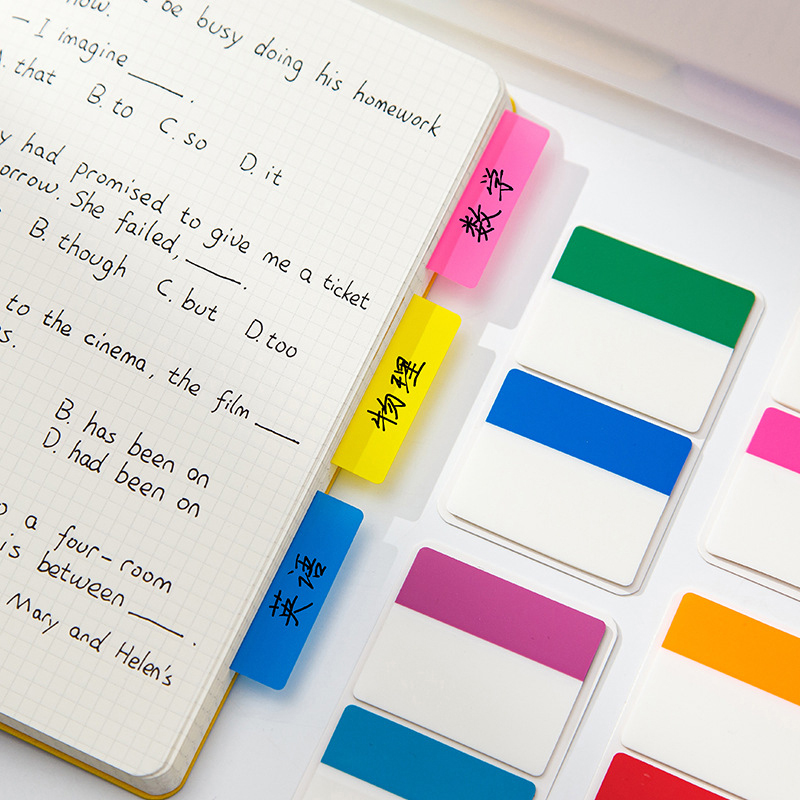 now.
be busy doing his homework
— I imagine ____.
A. that B. to C. so D. it
had promised to give me a ticket
She failed, ____.
B. though C. but D. too
to the cinema, the film ____
B. has been on
D. had been on
a four-room
is between ____.
Mary and Helen's
数学
物理
英语